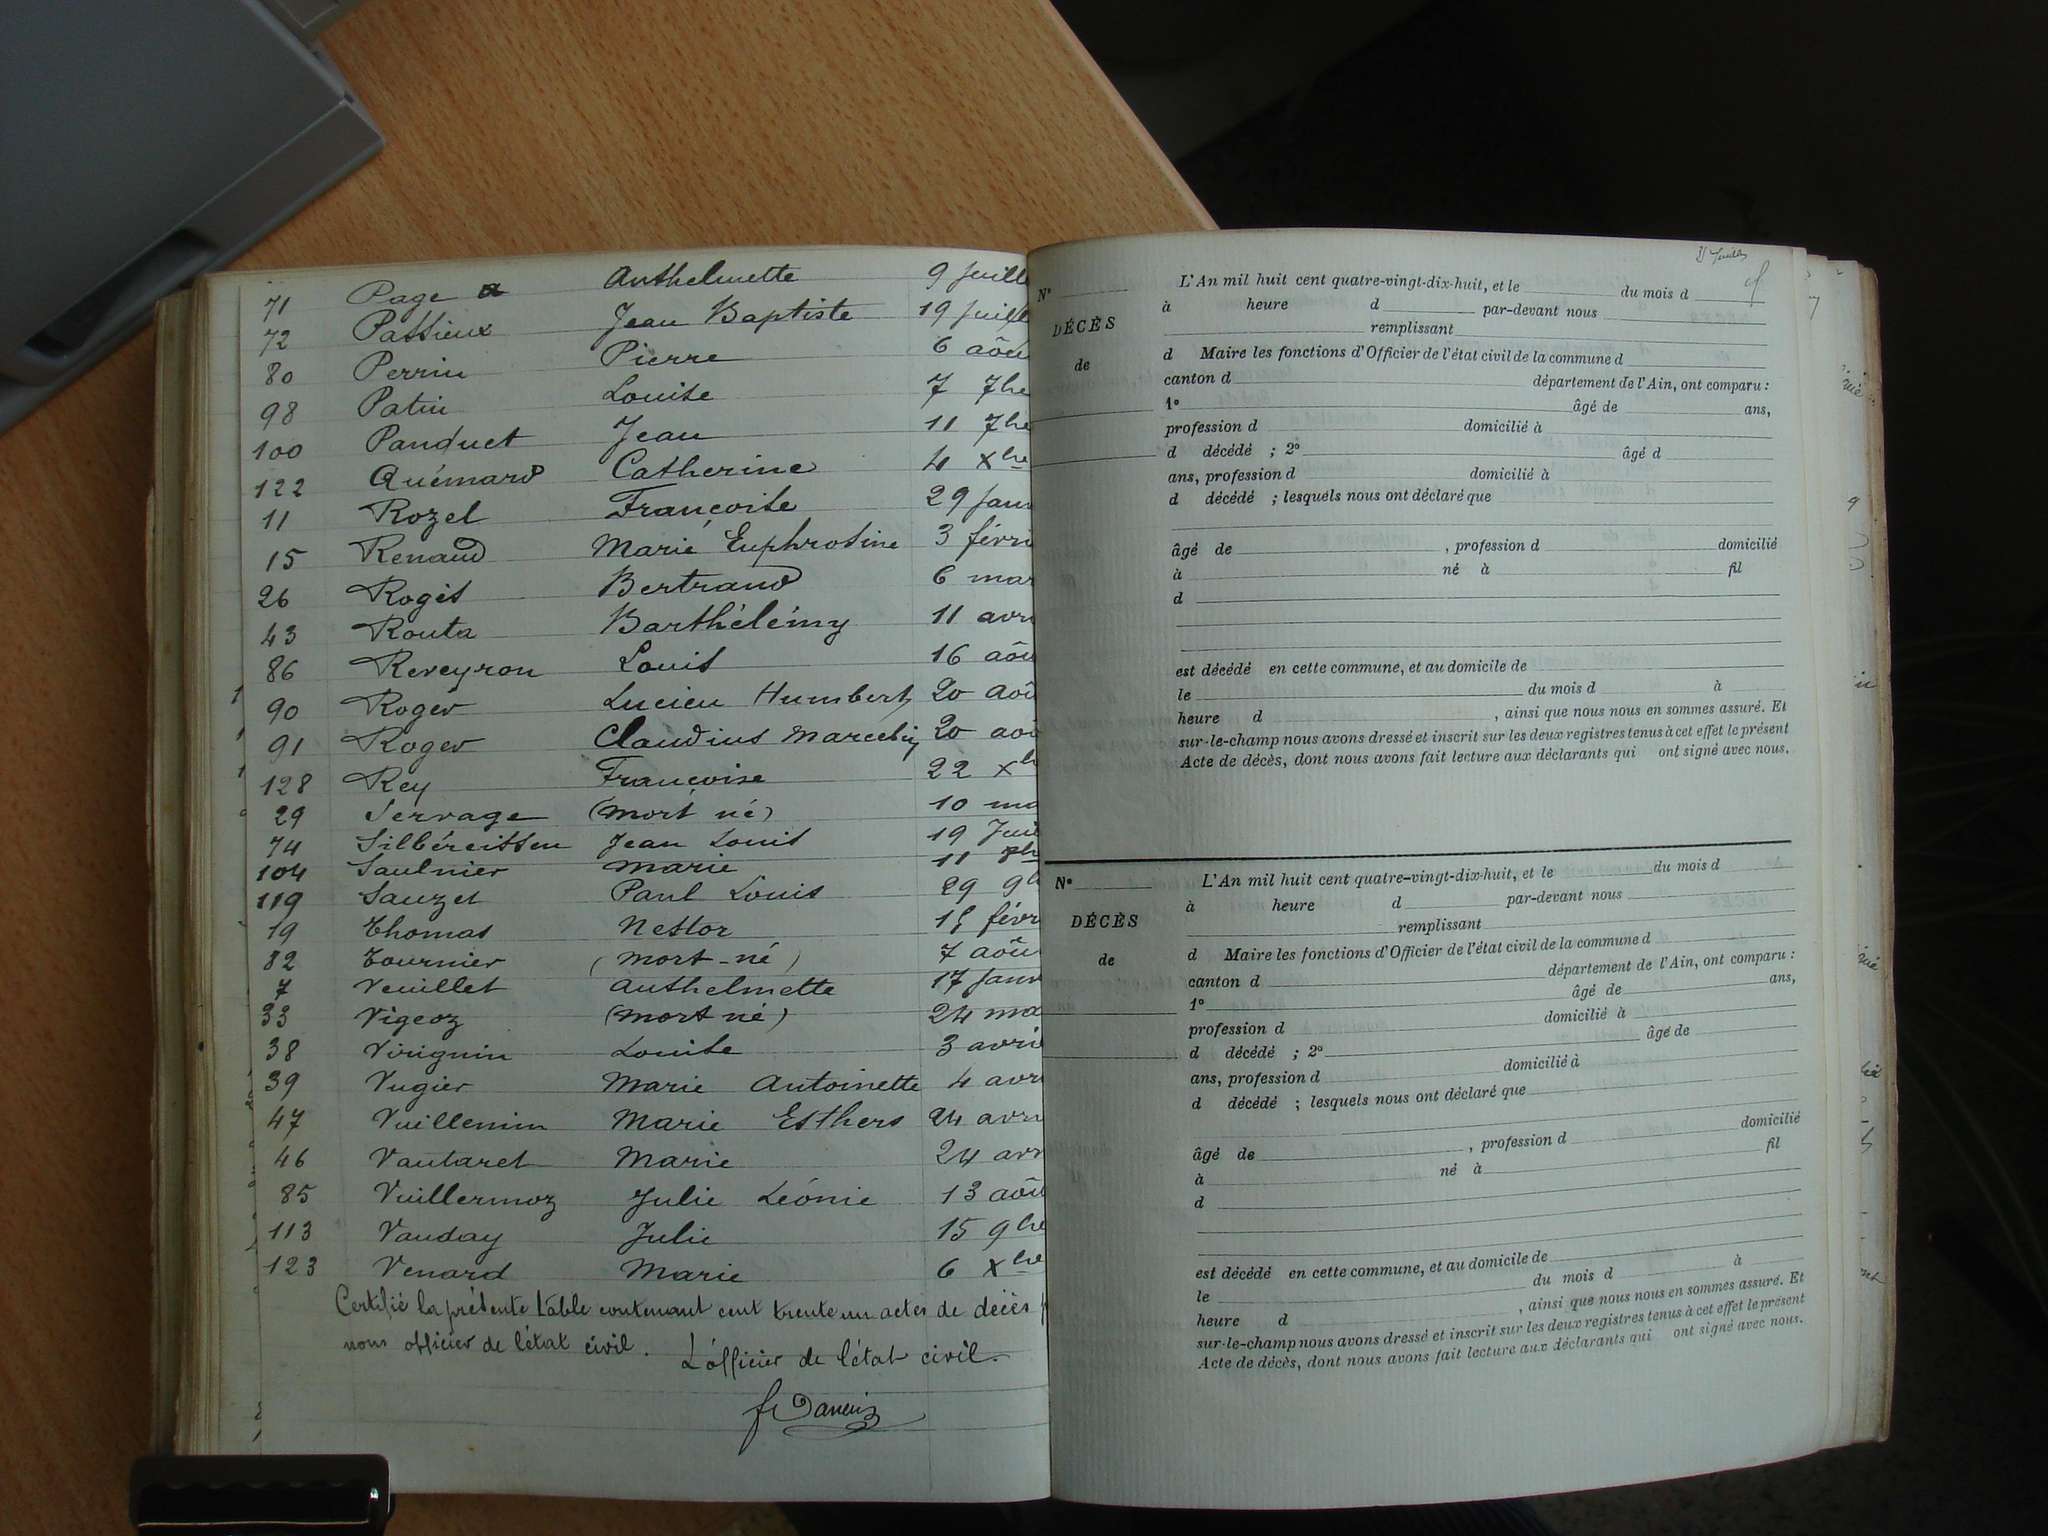 71 Page Anthelmette 9 Juill
72 Passieux Jean Baptiste 19 Juill
80 Perrin Pierre 6 aôu
98 Patin Louise 7 7bre
100 Panduet Jean 11 7bre
122 Quémard Catherine 4 Xbre
11 Rozel Françoise 29 Janv
15 Renaud Marie Euphrosine 3 févri
26 Rogis Bertrand 6 mar
43 Routa Barthélémy 11 avri
86 Reveyron Louis 16 aôu
90 Roger Lucien Humbert 20 aôu
91 Roger Claudius Marcelin 20 aôu
128 Rey Françoise 22 Xb
29 Servage (mort né) 10 ma
74 Silbéreissen Jean Louis 19 Juil
104 Saulnier Marie 11
119 Sauzet Paul Louis 29 9b
19 Thomas Nestor 15 févr
82 Tournier (mort-né) 7 aôu
7 Veuillet Anthelmette 17 Janv
33 Vigeoz (mort né) 24 ma
38 Virignin Louise 3 avri
39 Vugier Marie Antoinette 4 avri
47 Vuillemin Marie Esthers 24 avri
46 Vautaret Marie 24 avr
85 Vuillermoz Julie Léonie 13 aôu
113 Vauday Julie 15 9bre
123 Venard Marie 6 Xbre
Certifié la présente table contenant cent trente un actes de décès p
nous officier de l'état civil.
L'officier de l'état civil.
Juillet
N° L'An mil huit cent quatre-vingt-dix-huit, et le du mois d
à heure d par-devant nous
DÉCÈS remplissant
de d Maire les fonctions d'Officier de l'état civil de la commune d
canton d département de l'Ain, ont comparu :
1° âgé de ans,
profession d domicilié à
d décédé ; 2° âgé d
ans, profession d domicilié à
d décédé ; lesquels nous ont déclaré que
âgé de , profession d domicilié
à né à fil
d
est décédé en cette commune, et au domicile de
le du mois d à
heure d , ainsi que nous nous en sommes assuré. Et
sur-le-champ nous avons dressé et inscrit sur les deux registres tenus à cet effet le présent
Acte de décès, dont nous avons fait lecture aux déclarants qui ont signé avec nous.
N° L'An mil huit cent quatre-vingt-dix-huit, et le du mois d
à heure d par-devant nous
DÉCÈS remplissant
de d Maire les fonctions d'Officier de l'état civil de la commune d
canton d département de l'Ain, ont comparu :
1° âgé de ans,
profession d domicilié à
d décédé ; 2° âgé de
ans, profession d domicilié à
d décédé ; lesquels nous ont déclaré que
âgé de , profession d domicilié
à né à fil
d
est décédé en cette commune, et au domicile de
le du mois d à
heure d , ainsi que nous nous en sommes assuré. Et
sur-le-champ nous avons dressé et inscrit sur les deux registres tenus à cet effet le présent
Acte de décès, dont nous avons fait lecture aux déclarants qui ont signé avec nous.